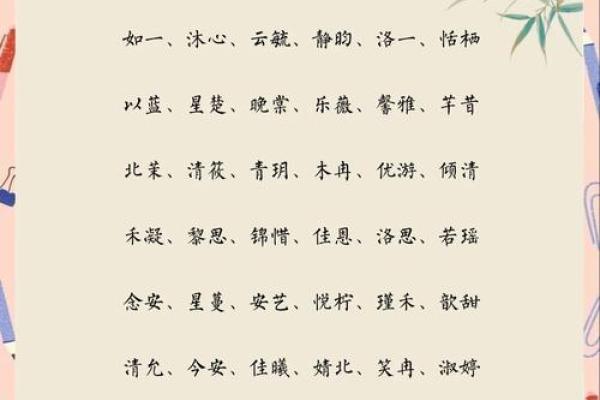 如一、沐心、云毓、静昀、洛一、恬栖
以蓝、星楚、晚棠、乐薇、馨雅、芊昔
北茉、清筱、青玥、木冉、优游、倾清
禾凝、黎思、锦惜、佳恩、洛思、若瑶
念安、星蔓、安艺、悦柠、瑾禾、歆甜
清允、今安、佳曦、婧北、笑冉、淑婷